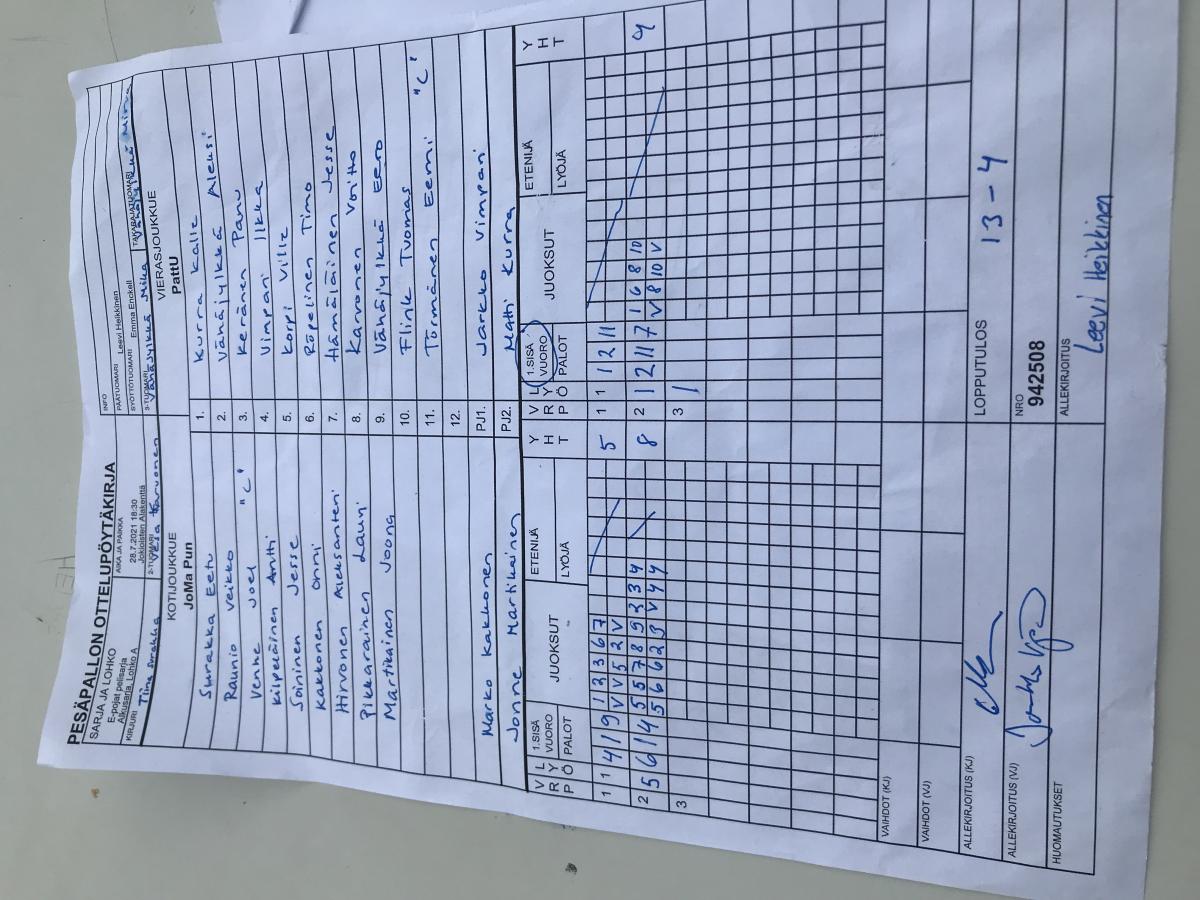 PESÄPALLON OTTELUPÖYTÄKIRJA
SARJA JA LOHKO
E-pojat pelisarja
Alkusarja, Lohko A
AIKA JA PAIKKA
28.7.2021 18:30
Jokioisten Alakenttä
INFO
PÄÄTUOMARI Leevi Heikkinen
SYÖTTÖTUOMARI Emma Enckell
KIRJURI Tiina Surakka
2-TUOMARI Vesa Karvonen
3-TUOMARI Vähäjylkkä Mika
TAKARAJATUOMARI Vähäjylkkä Minna
KOTIJOUKKUE VIERASJOUKKUE
JoMa Pun PattU
Surakka Eetu 1. Kurra Kalle
Raunio Veikko 2. Vähäjylkkä Aleksi
Venhe Joel "C" 3. Keränen Panu
Kiipeläinen Antti 4. Vimpari Ilkka
Soininen Jesse 5. Korpi Ville
Kakkonen Onni 6. Röpelinen Timo
Hirvonen Aleksanteri 7. Hämäläinen Jesse
Pikkarainen Lauri 8. Karvonen Voitto
Martikainen Joona 9. Vähäjylkkä Eero
10. Flink Tuomas
11. Törmänen Eemi "C"
12.
Marko Kakkonen PJ1. Jarkko Vimpari
Jonne Martikainen PJ2. Matti Kurra
V R P L Y Ö 1.SISÄ VUORO PALOT JUOKSUT ETENIJÄ LYÖJÄ Y H T V R P L Y Ö 1.SISÄ VUORO PALOT JUOKSUT ETENIJÄ LYÖJÄ Y H T
1 1 4 1 9 1 3 3 6 7 5 1 1 1 2 11
V V 5 2 V
2 5 6 1 4 5 5 7 8 9 3 3 4 8 2 1 2 11 7 1 6 8 10 4
5 6 6 2 3 V 4 4 V 8 10 V
3 3 1
VAIHDOT (KJ)
VAIHDOT (VJ)
ALLEKIRJOITUS (KJ)
LOPPUTULOS 13 - 4
ALLEKIRJOITUS (VJ)
NRO
942508
HUOMAUTUKSET
ALLEKIRJOITUS
Leevi Heikkinen